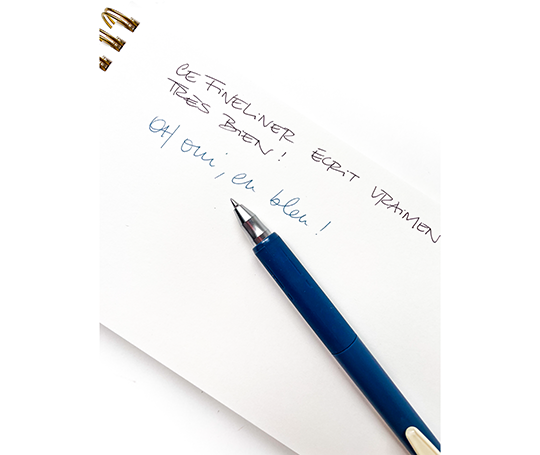 CE FINELINER ECRIT VRAIMEN
TRÈS BIEN!
OH oui, en bleu!